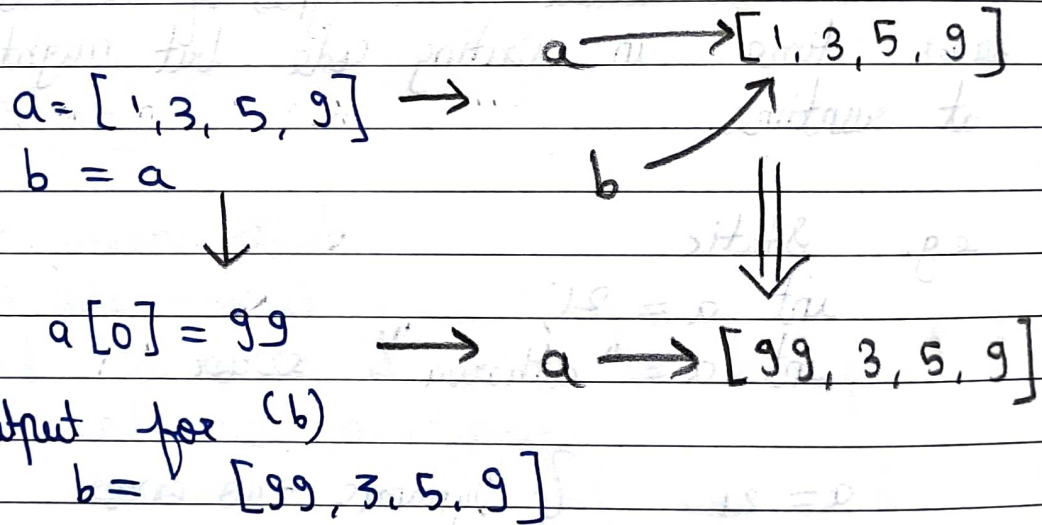 a → [1, 3, 5, 9]
a = [1, 3, 5, 9] →
b = a
b
a[0] = 99 → a → [99, 3, 5, 9]
tput for (b)
b = [99, 3, 5, 9]